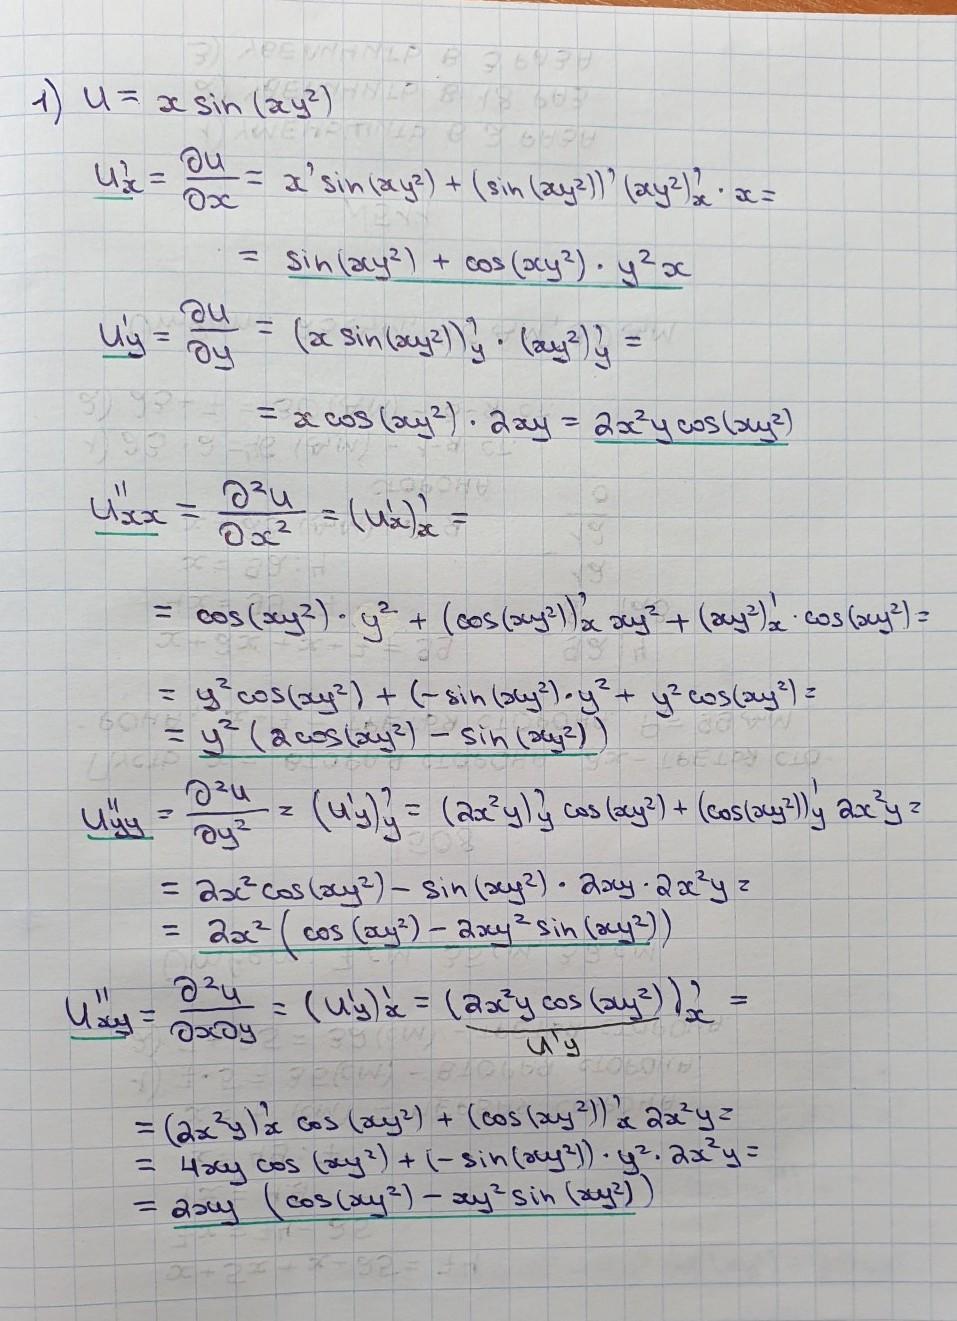 1) u = x sin(xy²)
u'x = ∂u/∂x = x' sin(xy²) + (sin(xy²))' (xy²)'x · x =
= sin(xy²) + cos(xy²) · y²x
u'y = ∂u/∂y = (x sin(xy²))'y · (xy²)'y =
= x cos(xy²) · 2xy = 2x²y cos(xy²)
u''xx = ∂²u/∂x² = (u'x)'x =
= cos(xy²) · y² + (cos(xy²))'x xy² + (xy²)'x · cos(xy²) =
= y² cos(xy²) + (-sin(xy²) · y² + y² cos(xy²) =
= y² (2cos(xy²) - sin(xy²))
u''yy = ∂²u/∂y² = (u'y)'y = (2x²y)'y cos(xy²) + (cos(xy²))'y 2x²y =
= 2x² cos(xy²) - sin(xy²) · 2xy · 2x²y =
= 2x² (cos(xy²) - 2xy² sin(xy²))
u''xy = ∂²u/∂x∂y = (u'y)'x = (2x²y cos(xy²))'x =
u'y
= (2x²y)'x cos(xy²) + (cos(xy²))'x 2x²y =
= 4xy cos(xy²) + (-sin(xy²)) · y² · 2x²y =
= 2xy (cos(xy²) - xy² sin(xy²))